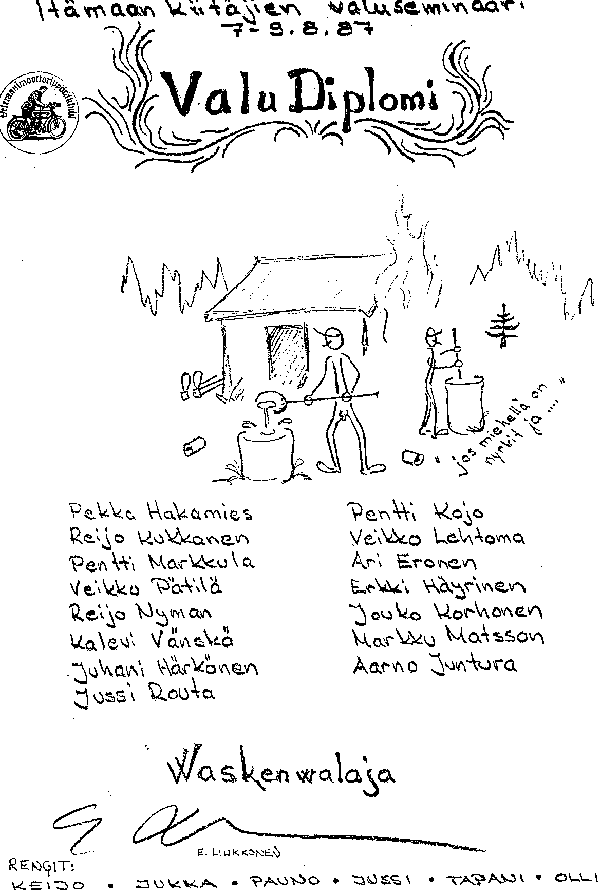 Itämaan Kiitäjien valuseminaari
7-9.8.87
Valu Diplomi
"jos miehellä on
nyrkit ja ...."
Pekka Hakamies
Reijo Kukkanen
Pentti Markkula
Veikko Pätilä
Reijo Nyman
Kalevi Vänskä
Juhani Härkönen
Jussi Routa
Pentti Kojo
Veikko Lehtoma
Ari Eronen
Erkki Häyrinen
Jouko Korhonen
Markku Matsson
Aarno Juntura
Waskenwalaja
E. LIUKKONEN
RENGIT:
KEIJO • JUKKA • PAUNO • JUSSI • TAPANI • OLLI